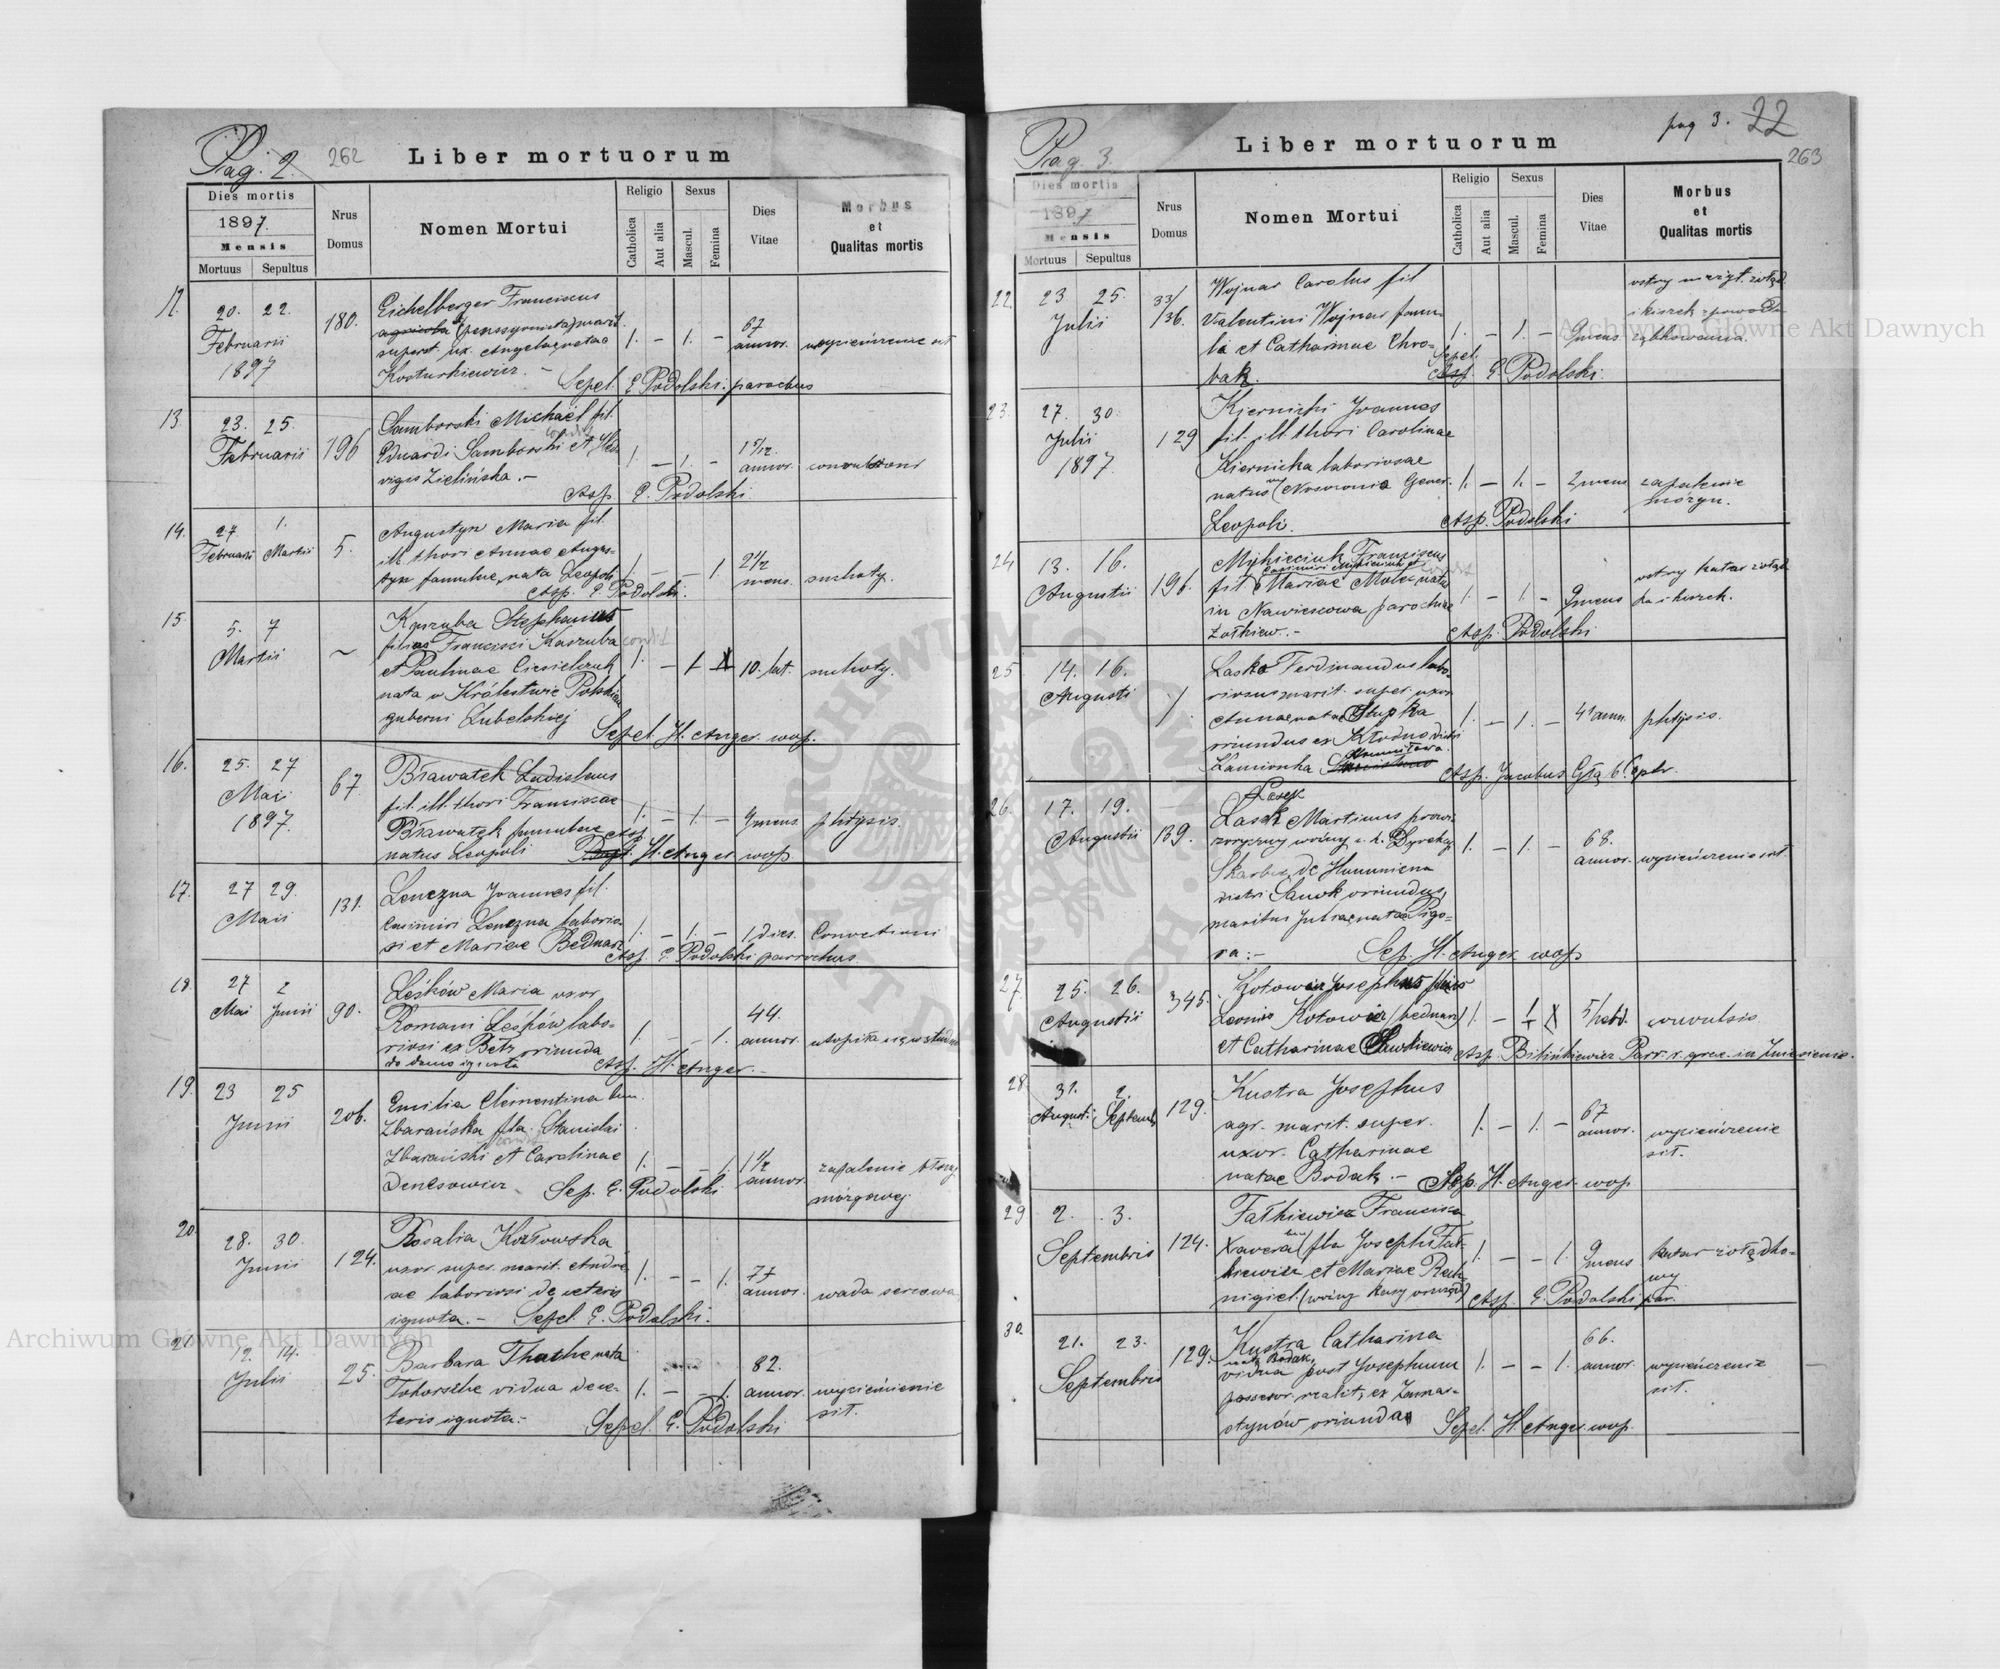 Pag. 2.
262
Liber mortuorum
Dies mortis
1897.
Mensis
Mortuus
Sepultus
Nrus
Domus
Nomen Mortui
Religio
Catholica
Aut alia
Sexus
Mascul.
Femina
Dies
Vitae
Morbus
et
Qualitas mortis
12.
20. 22.
Februarii
1897
180.
Eichelberger Franciscus
agricola (penssyonista) marit.
superst. ux. Angelae natae
Kosturkiewicz. -
1. - 1. -
67
annor.
wycieńczenie sił
Sepel. E Podolski parochus
13.
23. 25.
Februarii
196
Samborski Michaël fil.
Eduardi Samborski et Hed
vigis Zielińska. -
1. - 1. -
1 5/12
annor.
Asp. E. Podolski
14.
27 1.
Februarii Martii
5.
Augustyn Maria fil.
ill. thori Annae Augus-
tyn famulae, nata Leopoli
1. - - 1.
2 1/2
mens.
suchoty.
Asp. E Podolski.
15.
5. 7
Martii
~
Kaszuba Stephanus
filius Francisci Kaszuba
et Paulinae Ciesielczuk
nata w Królestwie Polskiem
guberni Lubelskiej
1. - 1
10. lat.
suchoty.
Sepel. H. Anger. wop.
16.
25. 27
Maii
1897.
67
Bławatek Ladislaus
fil. ill. thori Franciscae
Bławatek famulae
natus Leopoli
1. - 1. -
mens.
phtysis.
Asp. H. Anger wop.
17.
27 29.
Maii
131.
Lenczna Joannes fil.
Casimiri Lenczna laborio
si et Mariae Bednarz
1. - 1. -
1 dies.
Asp. E Podolski parrochus.
18
27 2
Mai Junii
90.
Leśków Maria uxor
Romani Leśków labo-
riosi ex Betz oriunda
de domo ignota
1. - - 1.
44.
annor.
utopiła się w studni
Asp. H. Anger. -
19.
23 25
Junii
206.
Emilia Clementina bin.
Zbarańska fla. Stanislai
Zbarański et Carolinae
Denesowicz
1. - - 1.
1 1/2
annor.
zapalenie błony
mózgowej
Sep. E. Podolski
20.
28. 30.
Junii
124.
Rosalia Kozłowska
uxor. super. marit. Andre
ae laboriosi de ceteris
ignota. -
1. - - 1.
77
annor.
wada sercowa
Sepel. E. Podolski.
21
12. 14.
Julii
25.
Barbara nata
vidua de ce-
teris ignota. -
1. - - 1.
82.
annor.
sił.
Sepel. E. Podolski
Pag. 3.
pag 3. 22
263
Liber mortuorum
Dies mortis
1897
Mensis
Mortuus
Sepultus
Nrus
Domus
Nomen Mortui
Religio
Catholica
Aut alia
Sexus
Mascul.
Femina
Dies
Vitae
Morbus
et
Qualitas mortis
22.
23 25.
Julii
33/
136.
Wojnar Carolus fil
Valentini Wojnar famu-
li et Catharinae Chro-
bak.
1. - 1. -
9 mens.
ostry nieżyt żołąd
i kiszek z powodu
ząbkowania.
Sepel.
Asp. E Podolski.
23.
27. 30.
Julii
1897.
129
Kiernicki Joannes
fil. ill. thori Carolinae
Kiernicka laboriosae
natus
Leopoli.
1. - 1. -
2 mens
zapalenie
mózgu.
Asp. Podolski
24
13. 16.
Augustii
196.
Mykieciuk Franciscus
Casimiri Mykieciuk et
fil. Mariae Molek natus
in parochiae
Żółkiew. -
1. - 1 -
9 mens
ostry katar żołąd
ka i kiszek.
Asp. Podolski
25
14. 16.
Augusti
1
Lasko Ferdinandus labo-
riosus marit. super. uxor
Annae natae Słupka
oriundus ex Kłodno distri
Kamionka
1. - 1. -
41 ann.
phtysis.
Asp. Jacobus
26.
17. 19.
Augustii
139.
Lasek
Martinus prowi
zoryczny woźny c. k. Dyrekcyi
Skarbu, de Humniena
distri Sanok oriundus,
maritus Juliae natae Pigo-
ra: -
1. - 1. -
68.
annor.
wycieńczenie sił
Sep. H. Anger wop
27
25. 26.
Augustii
345.
Kotowicz Josephus filius
Leonis Kotowicz (bednarz)
et Catharinae Sawkiewicz
1. - 1
5 hebd.
convulsis
Asp. Bilińkiewicz Parr. r. grec. in Zniesienie.
28
31. 2.
Augusti. Septemb.
129.
Kustra Josephus
agr. marit. super.
uxor. Catharinae
natae Bodak. -
1. - 1. -
67
annor.
wycieńczenie
sił.
Sep. H. Anger. wop
29
2. 3.
Septembris
124.
Fałkiewicz Francisca
Xavera bin. fla Josephi Fał-
kiewicz et Mariae
1. - - 1.
9 mens
katar żołądko-
wy
Asp. E. Podolski par.
30.
21. 23.
Septembris
129.
Kustra Catharina
nata Bodak,
vidua post Josephum
possessor. realit, ex Zamar-
stynów oriunda
1. - - 1.
66.
annor.
wycieńczenie
sił.
Sepel. H. Anger. wop.
Archiwum Główne Akt Dawnych
Archiwum Główne Akt Dawnych